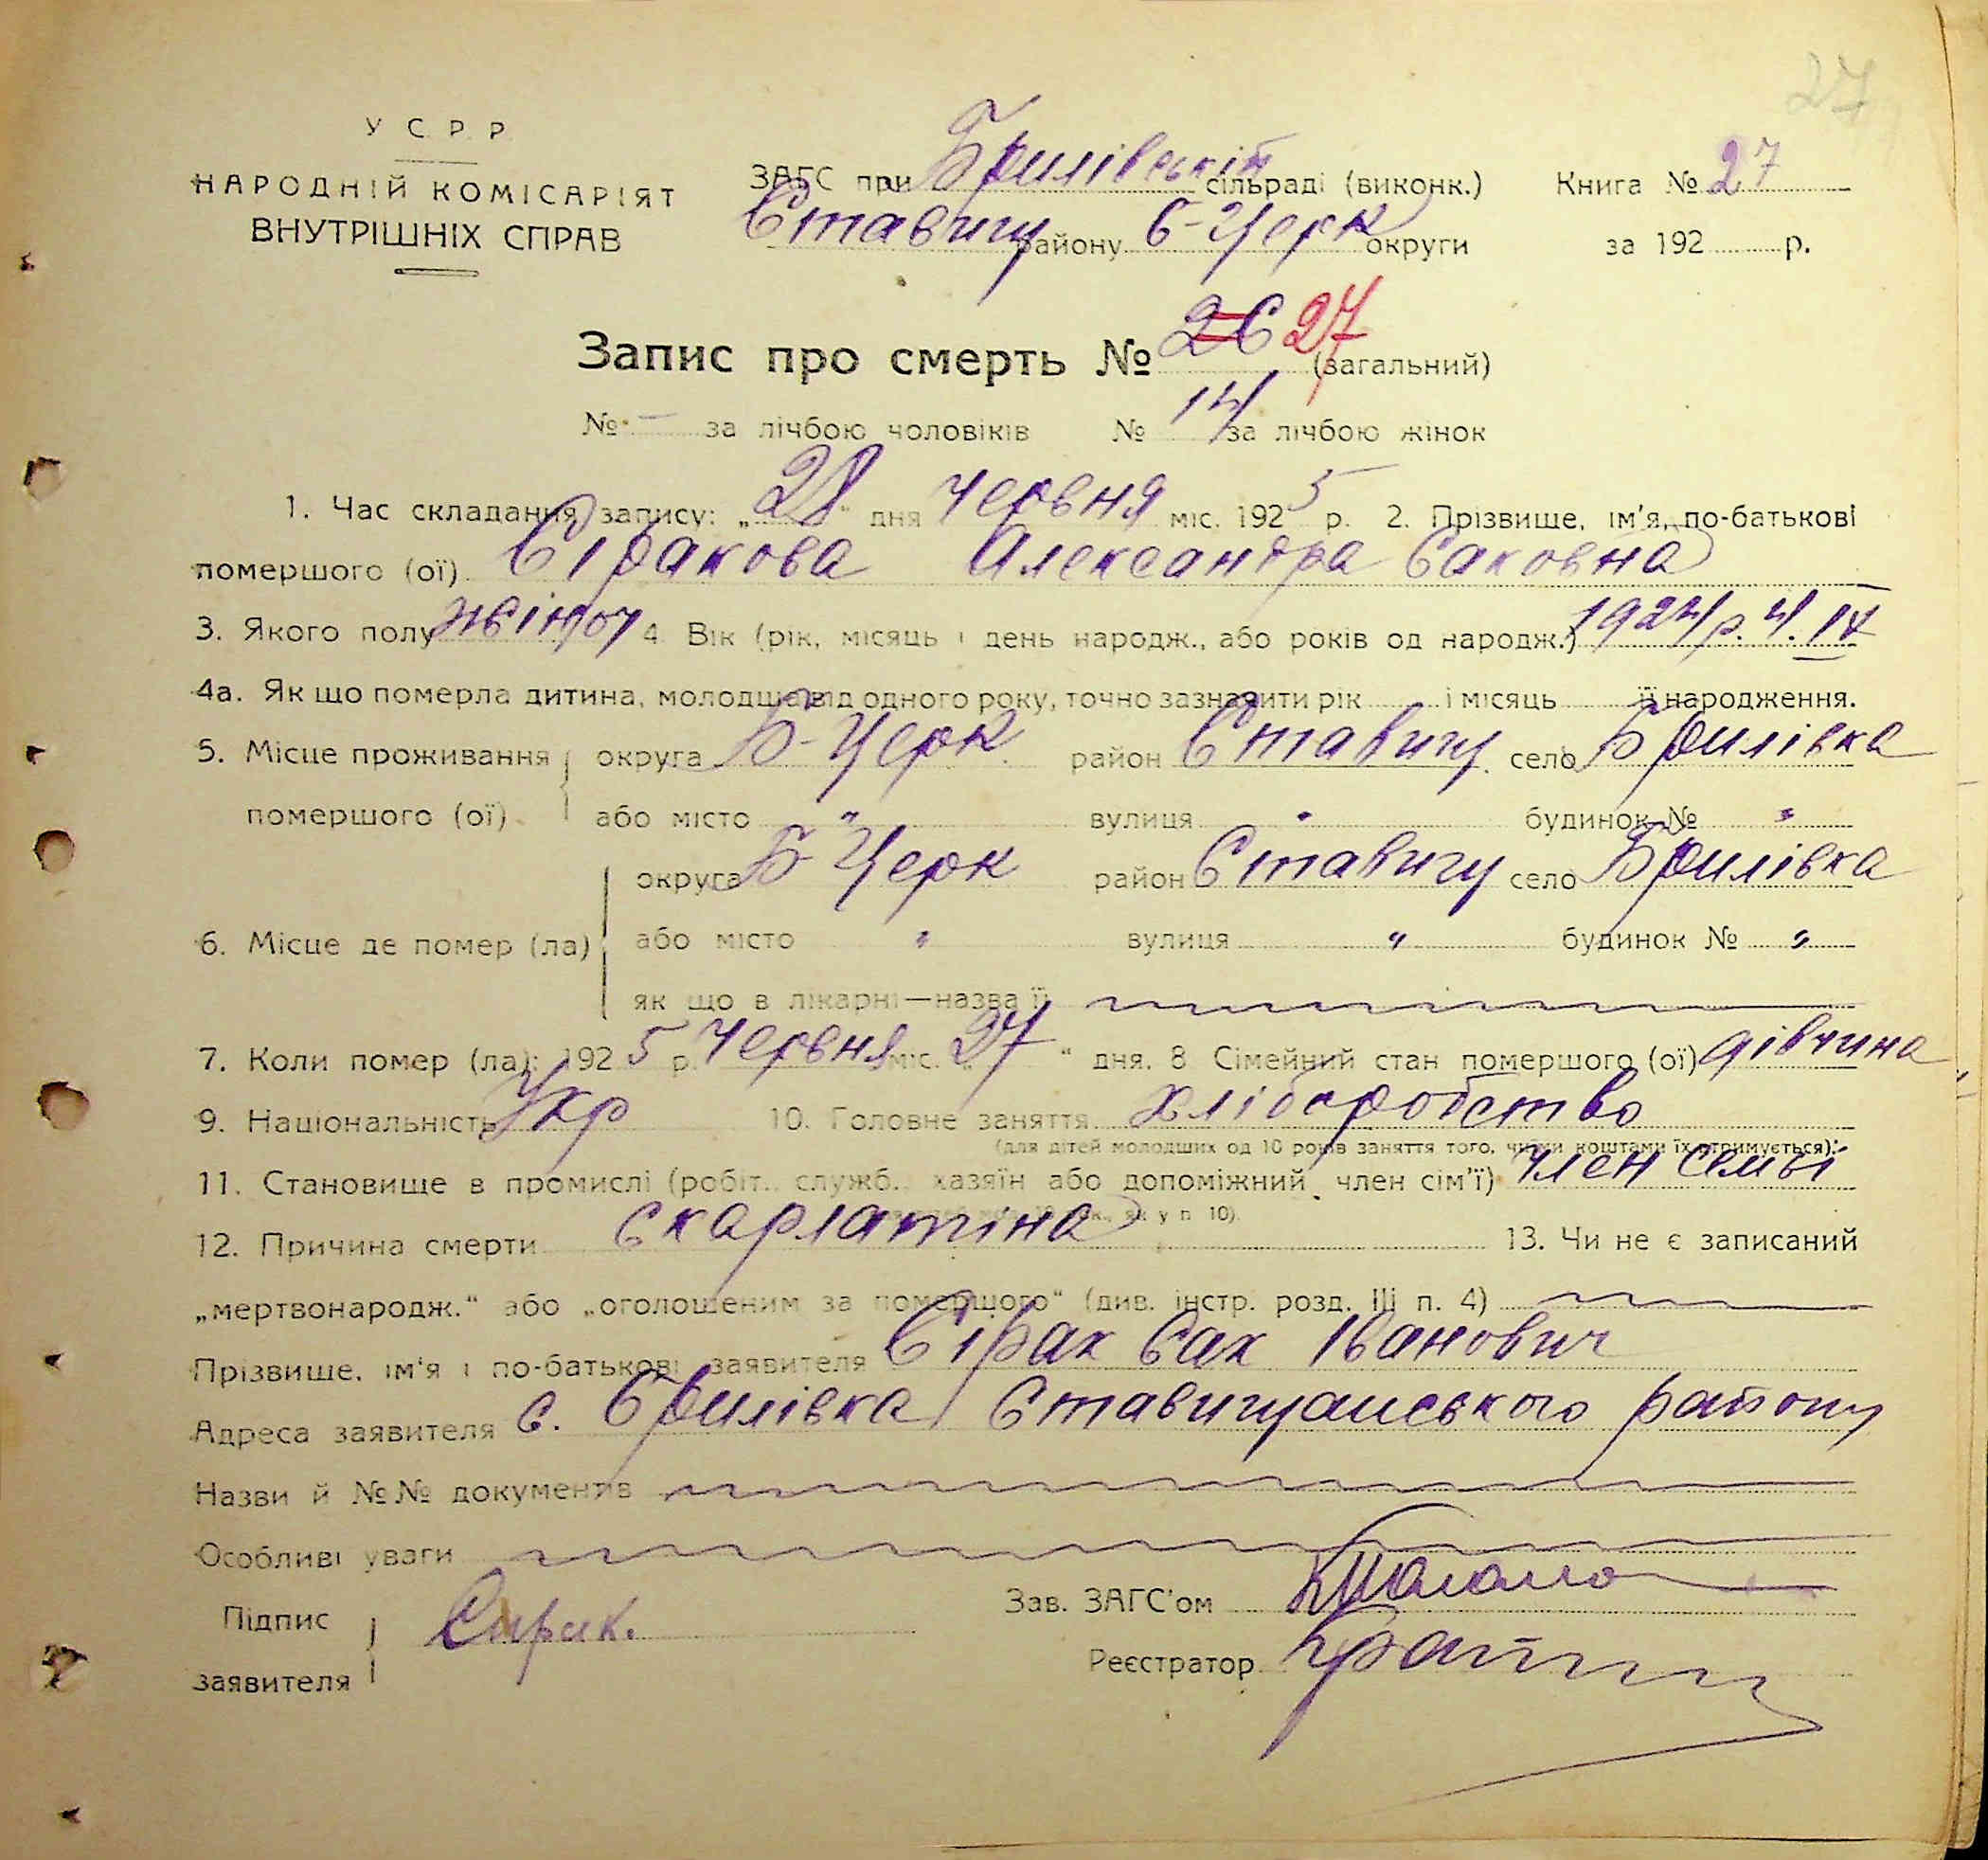 27
У С Р Р
НАРОДНІЙ КОМІСАРІЯТ
ВНУТРІШНІХ СПРАВ
ЗАГС при Брилівській сільраді (виконк.) Книга № 27
Ставищ району Б-Церк округи за 192 р.
Запис про смерть № 26 27 (загальний)
№ – за лічбою чоловіків № 14 за лічбою жінок
1. Час складання запису: „28" дня червня міс. 1925 р. 2. Прізвище, ім'я, по-батькові
помершого (ої) Сіракова Александра Саковна
3. Якого полу 4 Вік (рік, місяць і день народж., або років од народж.) 1924 р. 4. IV
4а. Як що померла дитина, молодша від одного року, точно зазначити рік і місяць її народження.
5. Місце проживання округа Б-Церк район Ставищ село Брилівка
помершого (ої) або місто " вулиця " будинок № "
округа Б-Церк район Ставищ село Брилівка
6. Місце де помер (ла) або місто " вулиця " будинок № "
як що в лікарні—назва її
7. Коли помер (ла): 1925 р. червня міс. „27" дня. 8 Сімейний стан помершого (ої) дівчина
9. Національність Укр 10. Головне заняття хліборобство
(для дітей молодших од 10 років заняття того, чиїми коштами їх отримується).
11. Становище в промислі (робіт., служб., хазяїн або допоміжний член сім'ї) член семьї
як у п 10).
12. Причина смерти скарлатіна 13. Чи не є записаний
„мертвонародж." або „оголошеним за померщого" (див. інстр. розд. III п. 4)
Прізвище, ім'я і по-батькові заявителя Сірак Сак Іванович
Адреса заявителя с. Брилівка Ставищанського району
Назви й №№ документів
Особливі уваги
Підпис заявителя Сирак.
Зав. ЗАГС'ом
Реєстратор